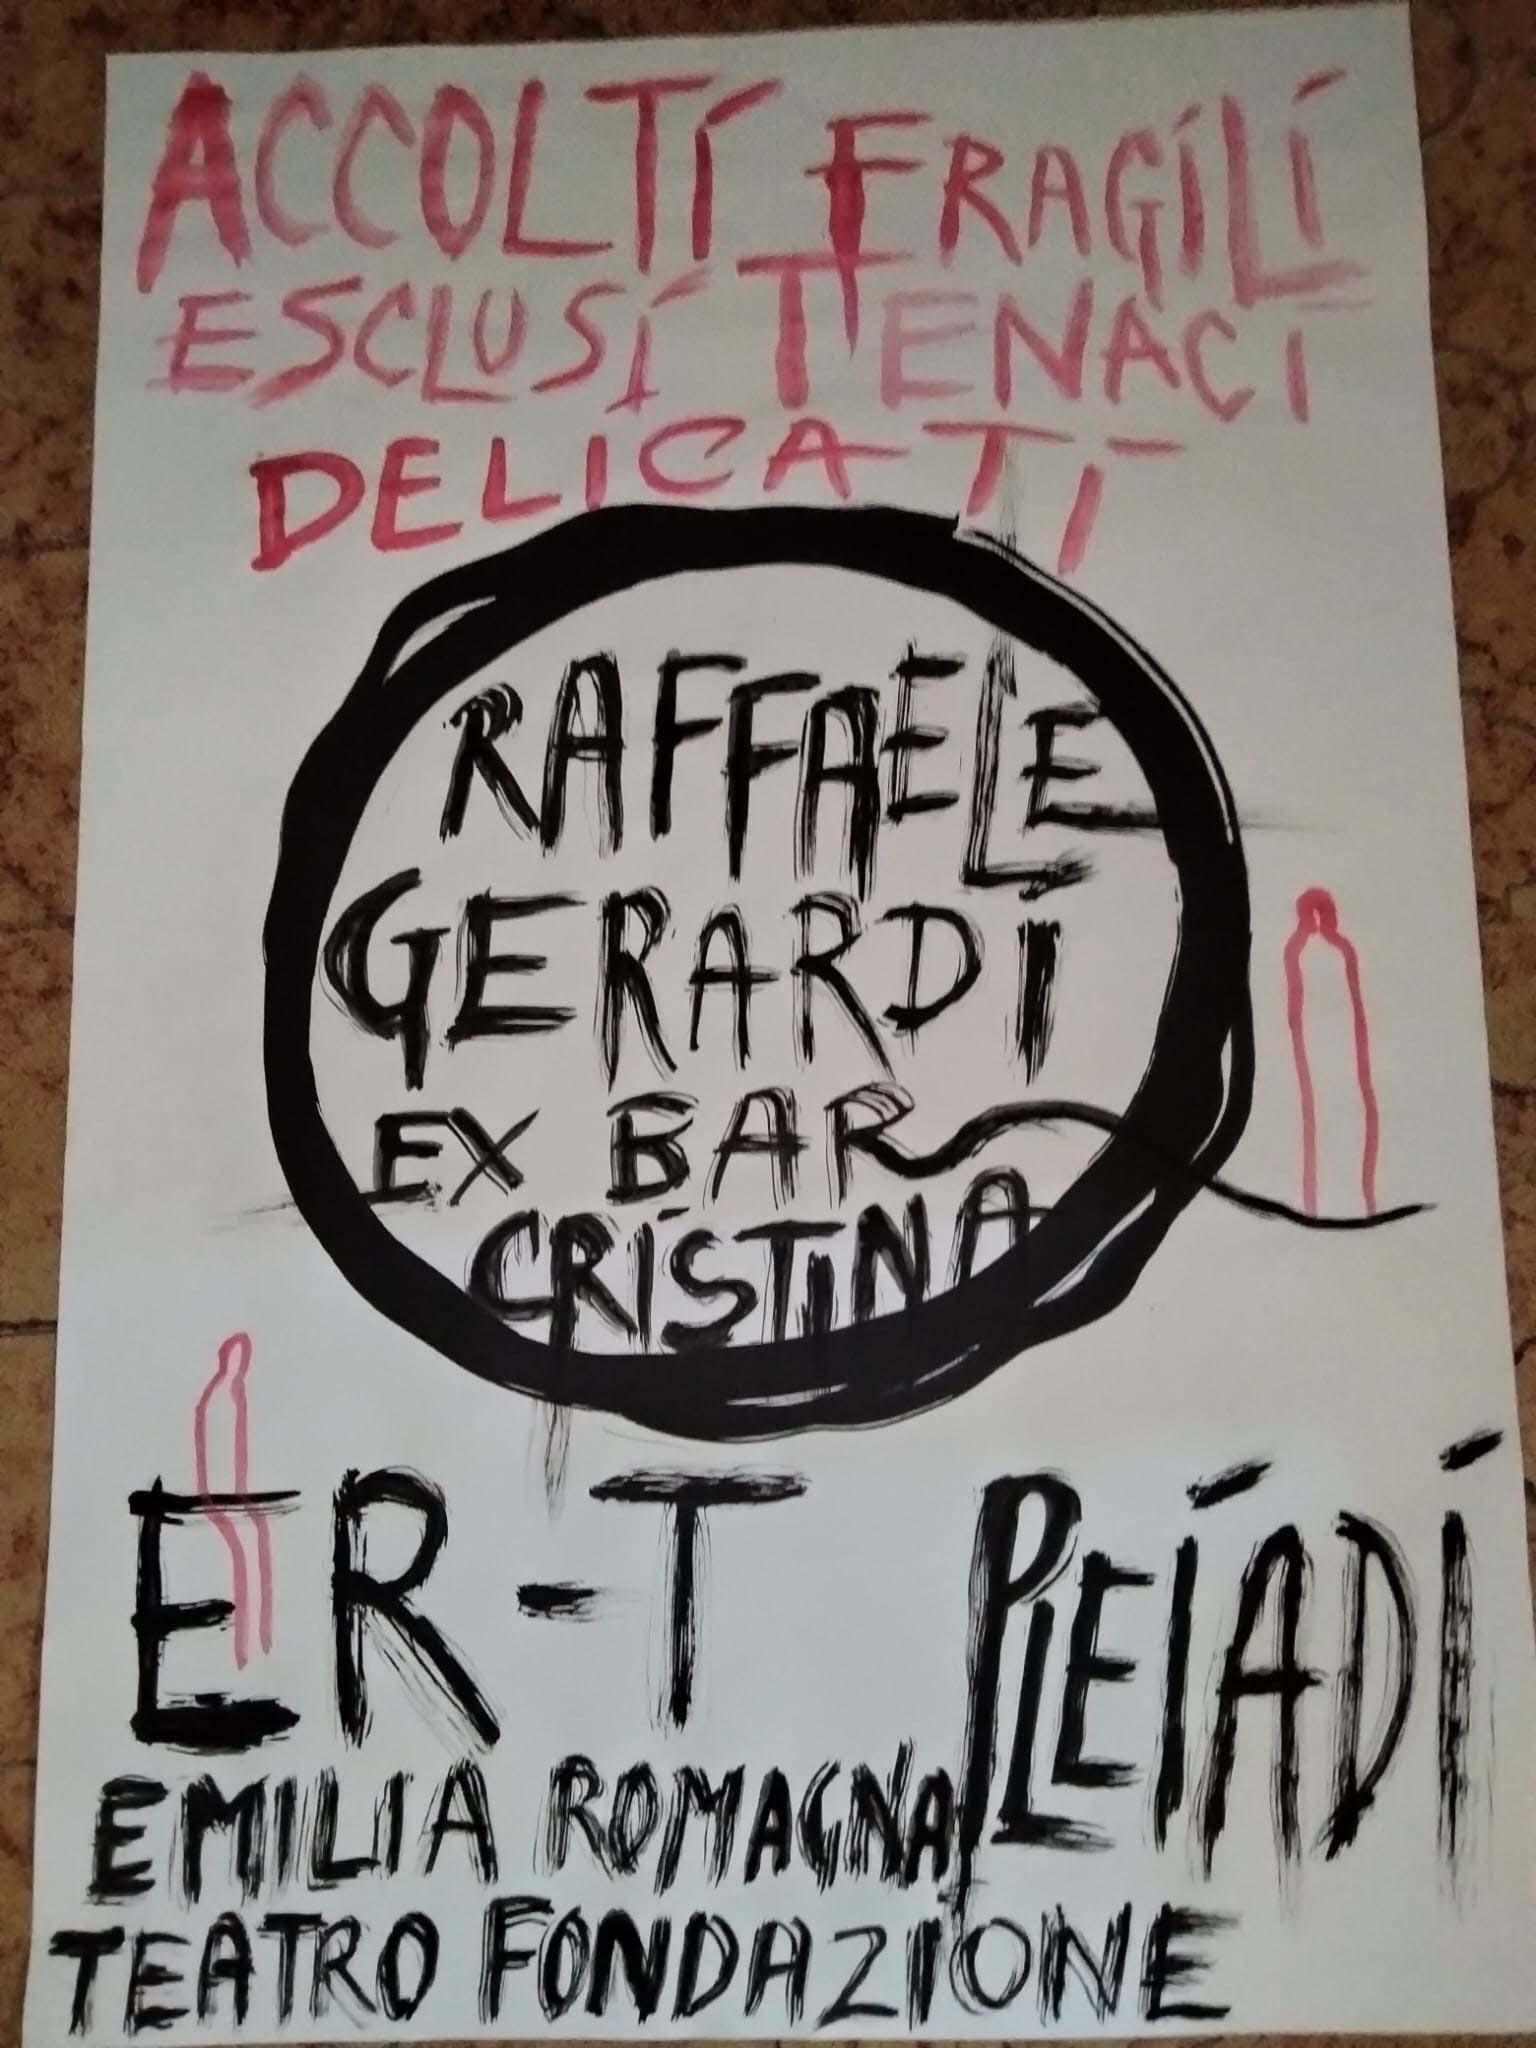 ACCOLTI FRAGILI
ESCLUSI TENACI
DELICATI
RAFFAELE
GERARDI
EX BAR
CRISTINA
ER-T PLEIADI
EMILIA ROMAGNA
TEATRO FONDAZIONE